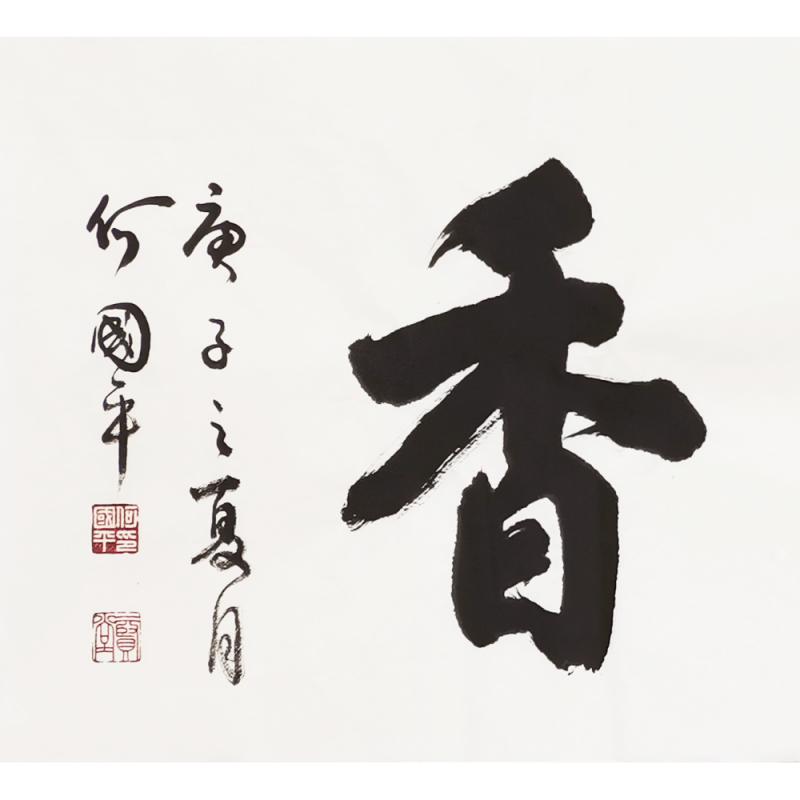 香
庚子之夏月
何國平
何國平印